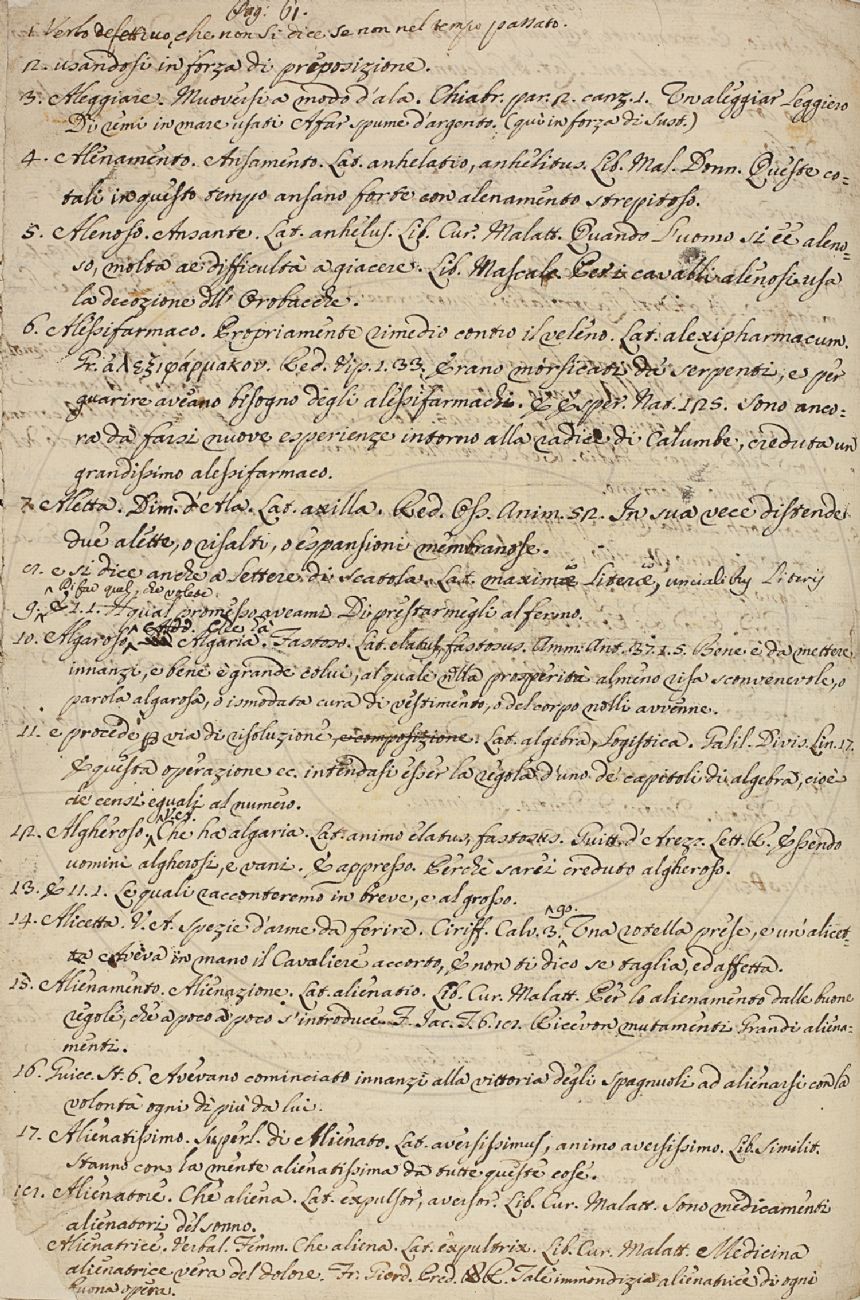 Pag: 61.
1. Verbo defettivo, che non si dice se non nel tempo passato.
2. usandosi in forza di preposizione.
3. Aleggiare. Muoversi a modo d'ala. Chiabr. par. 2. canz. 1. Un aleggiar Leggiero
Di remi in mare usati A far spume d'argento. (qui in forza di Sust.)
4. Alenamento. Ansamento. Lat. anhelatio, anhelitus. Lib. Mal. Donn. Queste co-
tali in questo tempo ansano forte con alenamento strepitoso.
5. Alenoso. Ansante. Lat. anhelus. Lib. Cur. Malatt. Quando l'uomo si èe aleno-
so, molta ae difficultà a giacere. Lib. Mascalc. Per i cavalli alenosi usa
la decozione dll' Orobacche.
6. Alessifarmaco. Propriamente rimedio contro il veleno. Lat. alexipharmacum.
Gr. ἀλεξιφάρμακον. Red. Vip. 1. 33. Erano morsicati da' serpenti, e per
guarire aveano bisogno degli alessifarmachi. E Esper. Nat. 125. Sono anco-
ra da farsi nuove esperienze intorno alla radice di Calumbe, creduta un
grandissimo alessifarmaco.
7. Aletta. Dim. d'Ala. Lat. axilla. Red. Oss. Anim. 52. In sua vece distende
due alette, o risalti, o espansioni membranose.
8. e si dice anche a Lettere di Scatola. Lat. maximæ Literæ, uncialibus Literis
Di far quel, che volese
9. E 1. 1. A qual promesso aveami Di prestarmegli al fermo.
Add. Che ha
10. Algaroso. Algaria. Fastoso. Lat. elatus, fastosus. Amm. Ant. 37. 1. 5. Bene è da mettere
innanzi, e bene è grande colui, al quale nlla prosperità almeno risa sconvenevole, o
parola algarosa, o ismodata cura di vestimento, o del corpo nolli avvenne.
11. e procede p via di risoluzione, e composizione. Lat. algebra, Logistica. Galil. Divis. Lin. 17.
E questa operazione ec. intendasi esser la regola d'uno de' capitoli di algebra, cioè
de' censi eguali al numero.
12. Algheroso. Che ha algaria. Lat. animo elatus, fastosus. Guitt. d'Arezz. Lett. R. Essendo
uomini algherosi, e vani. E appresso. Perchè sarei creduto algheroso.
13. E 11. 1. Le quali racconteremo in breve, e al grosso.
90.
14. Alicetta. V. A. Spezie d'arme da ferire. Ciriff. Calv. 3. Una rotella prese, e un' alicet-
ta Aveva in mano il Cavaliere accorto, E non ti dico se taglia, ed affetta.
15. Alienamento. Alienazione. Lat. alienatio. Lib. Cur. Malatt. Per lo alienamento dalle buone
regole, che a poco a poco s'introduce. F. Jac. T. 6. 18. Ricevon mutamenti Grandi aliena-
menti.
16. Guicc. St. 6. Avevano cominciato innanzi alla vittoria degli Spagnuoli ad alienarsi con la
volontà ogni dì più da lui.
17. Alienatissimo. Superl. di Alienato. Lat. aversissimus, animo aversissimo. Lib. Similit.
Stanno con la mente alienatissima da tutte queste cose.
18. Alienatore. Che aliena. Lat. expulsor, aversor. Lib. Cur. Malatt. Sono medicamenti
alienatori del sonno.
Alienatrice. Verbal. Femm. Che aliena. Lat. expultrix. Lib. Cur. Malatt. Medicina
alienatrice vera del dolore. Fr. Giord. Pred. R. Tale immondizia alienatrice di ogni
buona opera.